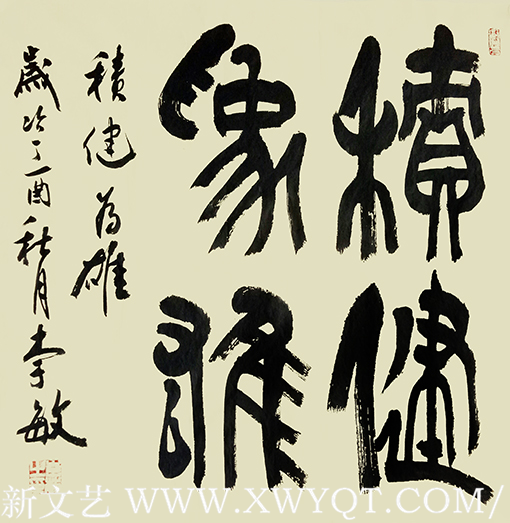 積健
為雄
積健為雄
歲次丁酉秋月李敏
新文艺 WWW.XWYQT.COM/